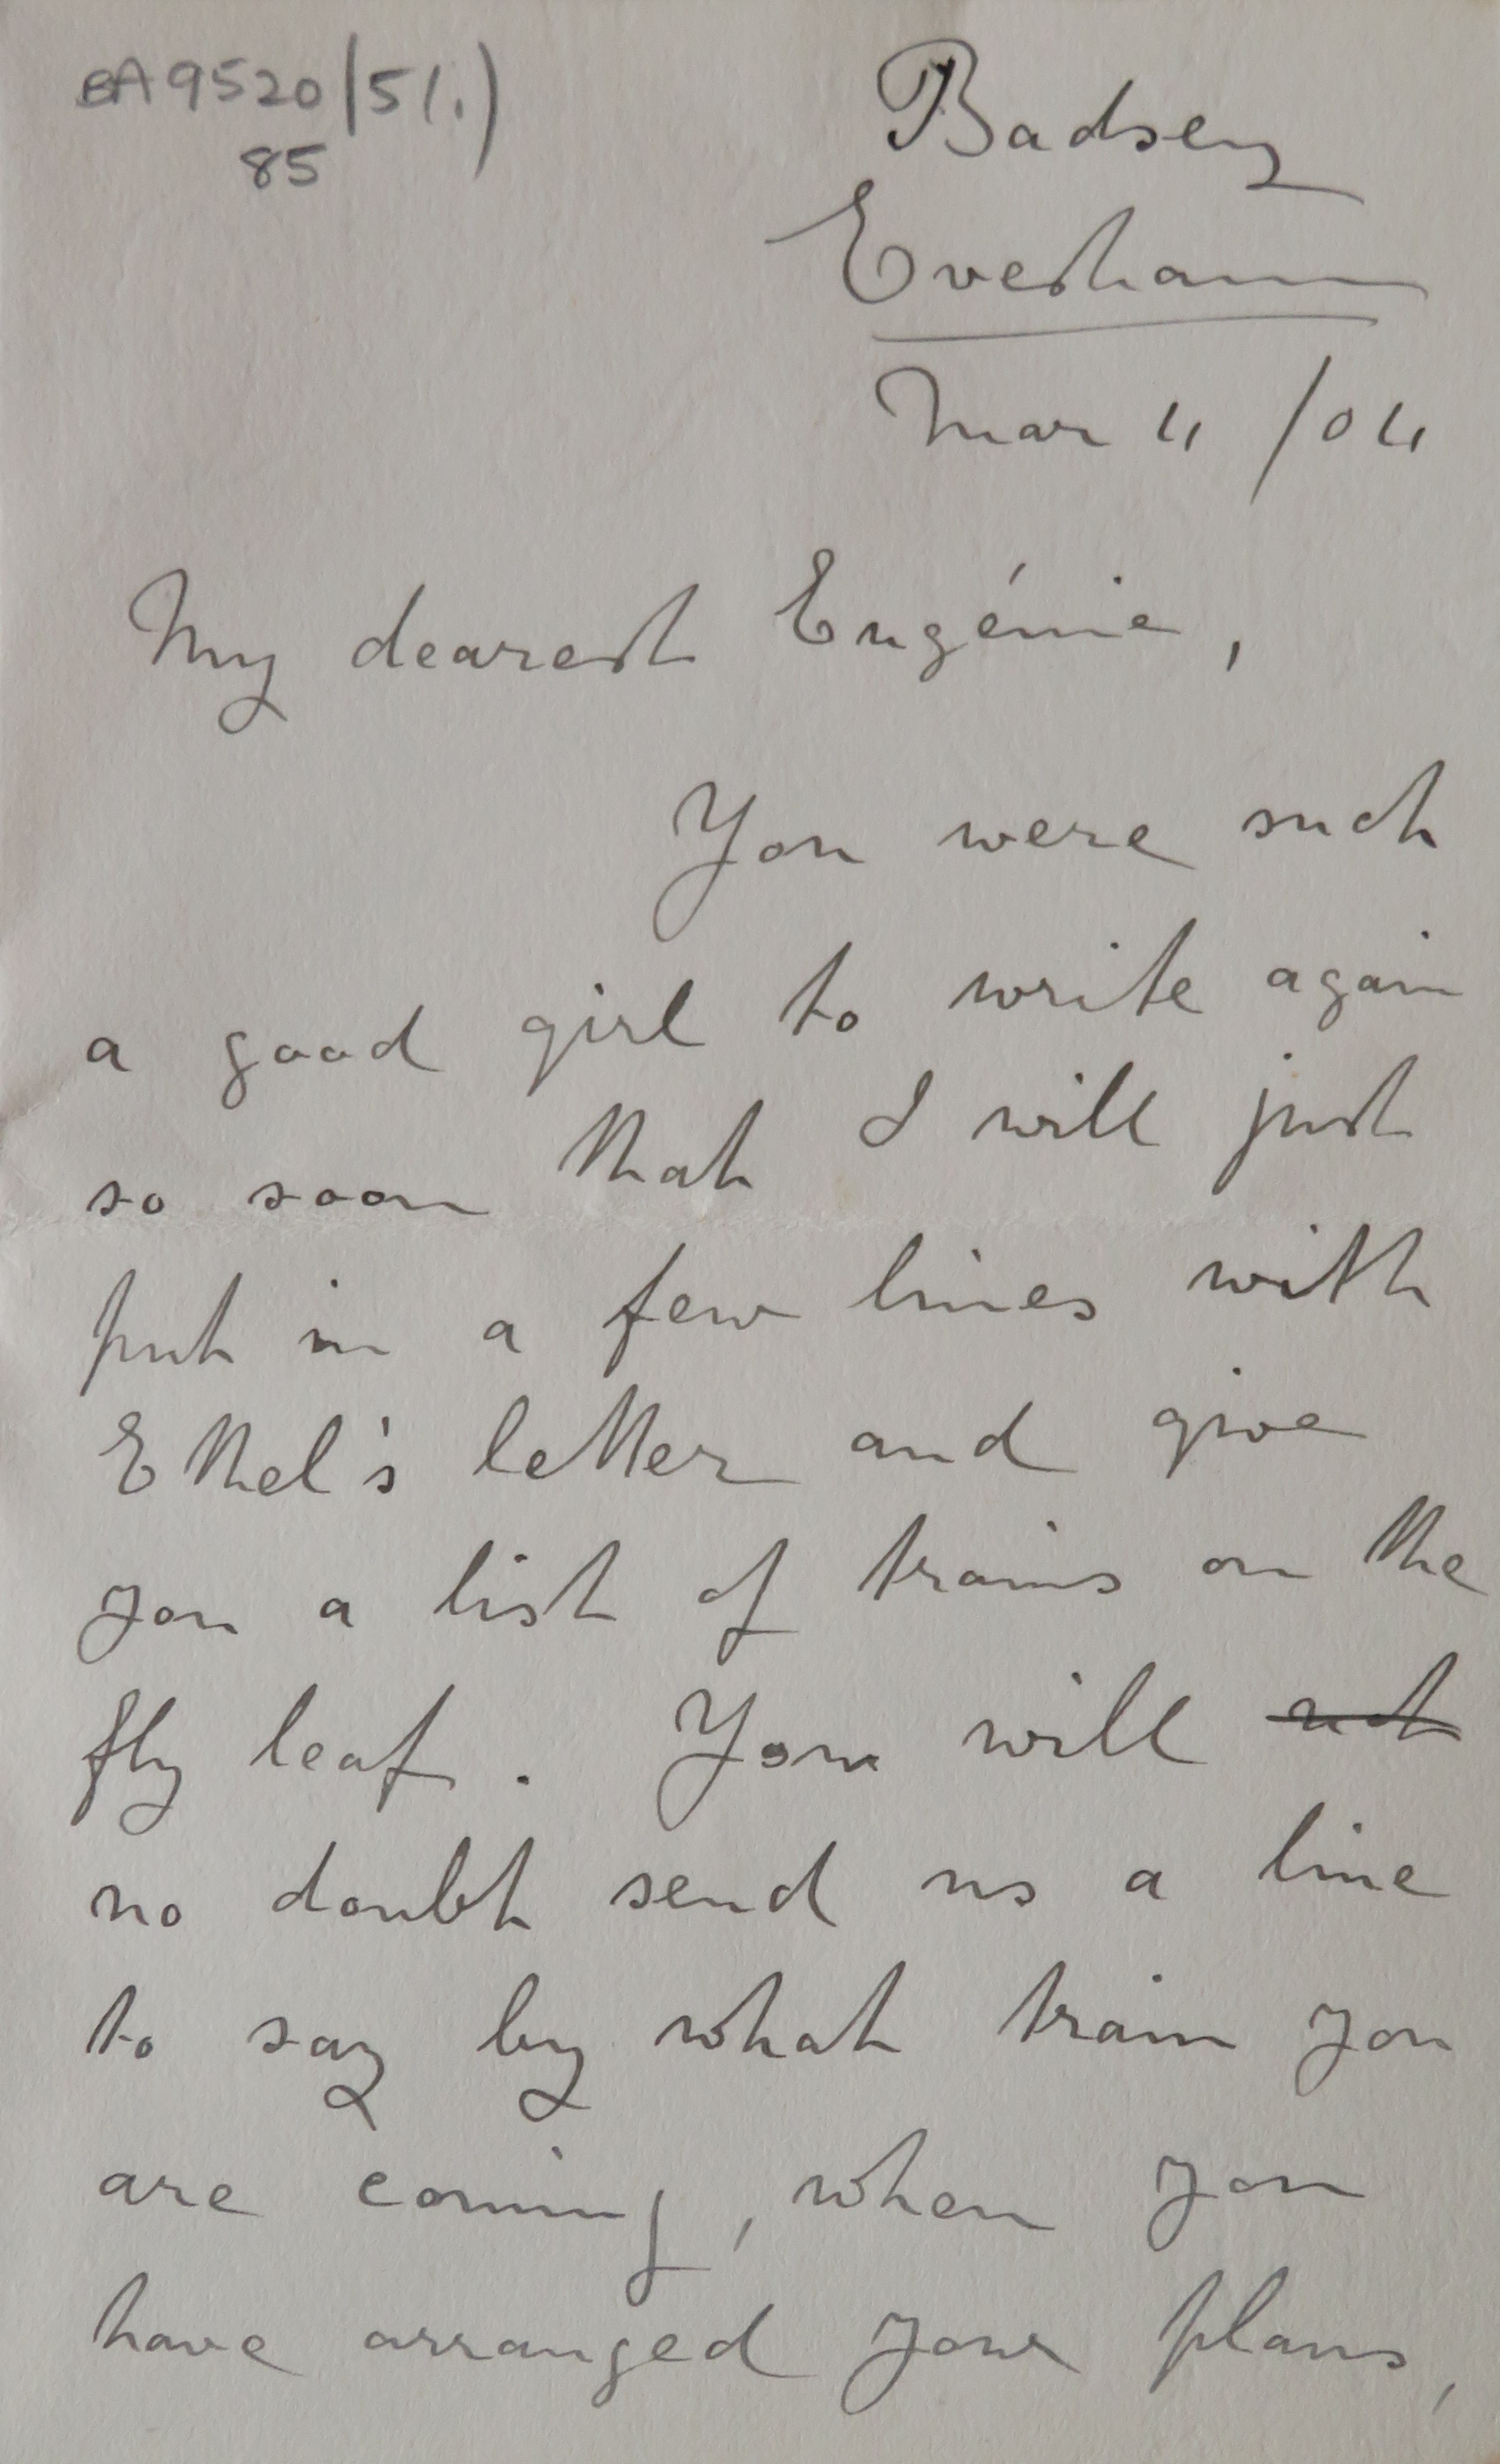 BA9520/5(1.)
85
Badsey
Evesham
Mar 4 /04
My dearest Eugénie,
You were such
a good girl to write again
so soon that I will just
put in a few lines with
Ethel's letter and give
you a list of trains on the
fly leaf. You will not
no doubt send us a line
to say by what train you
are coming, when you
have arranged your plans,